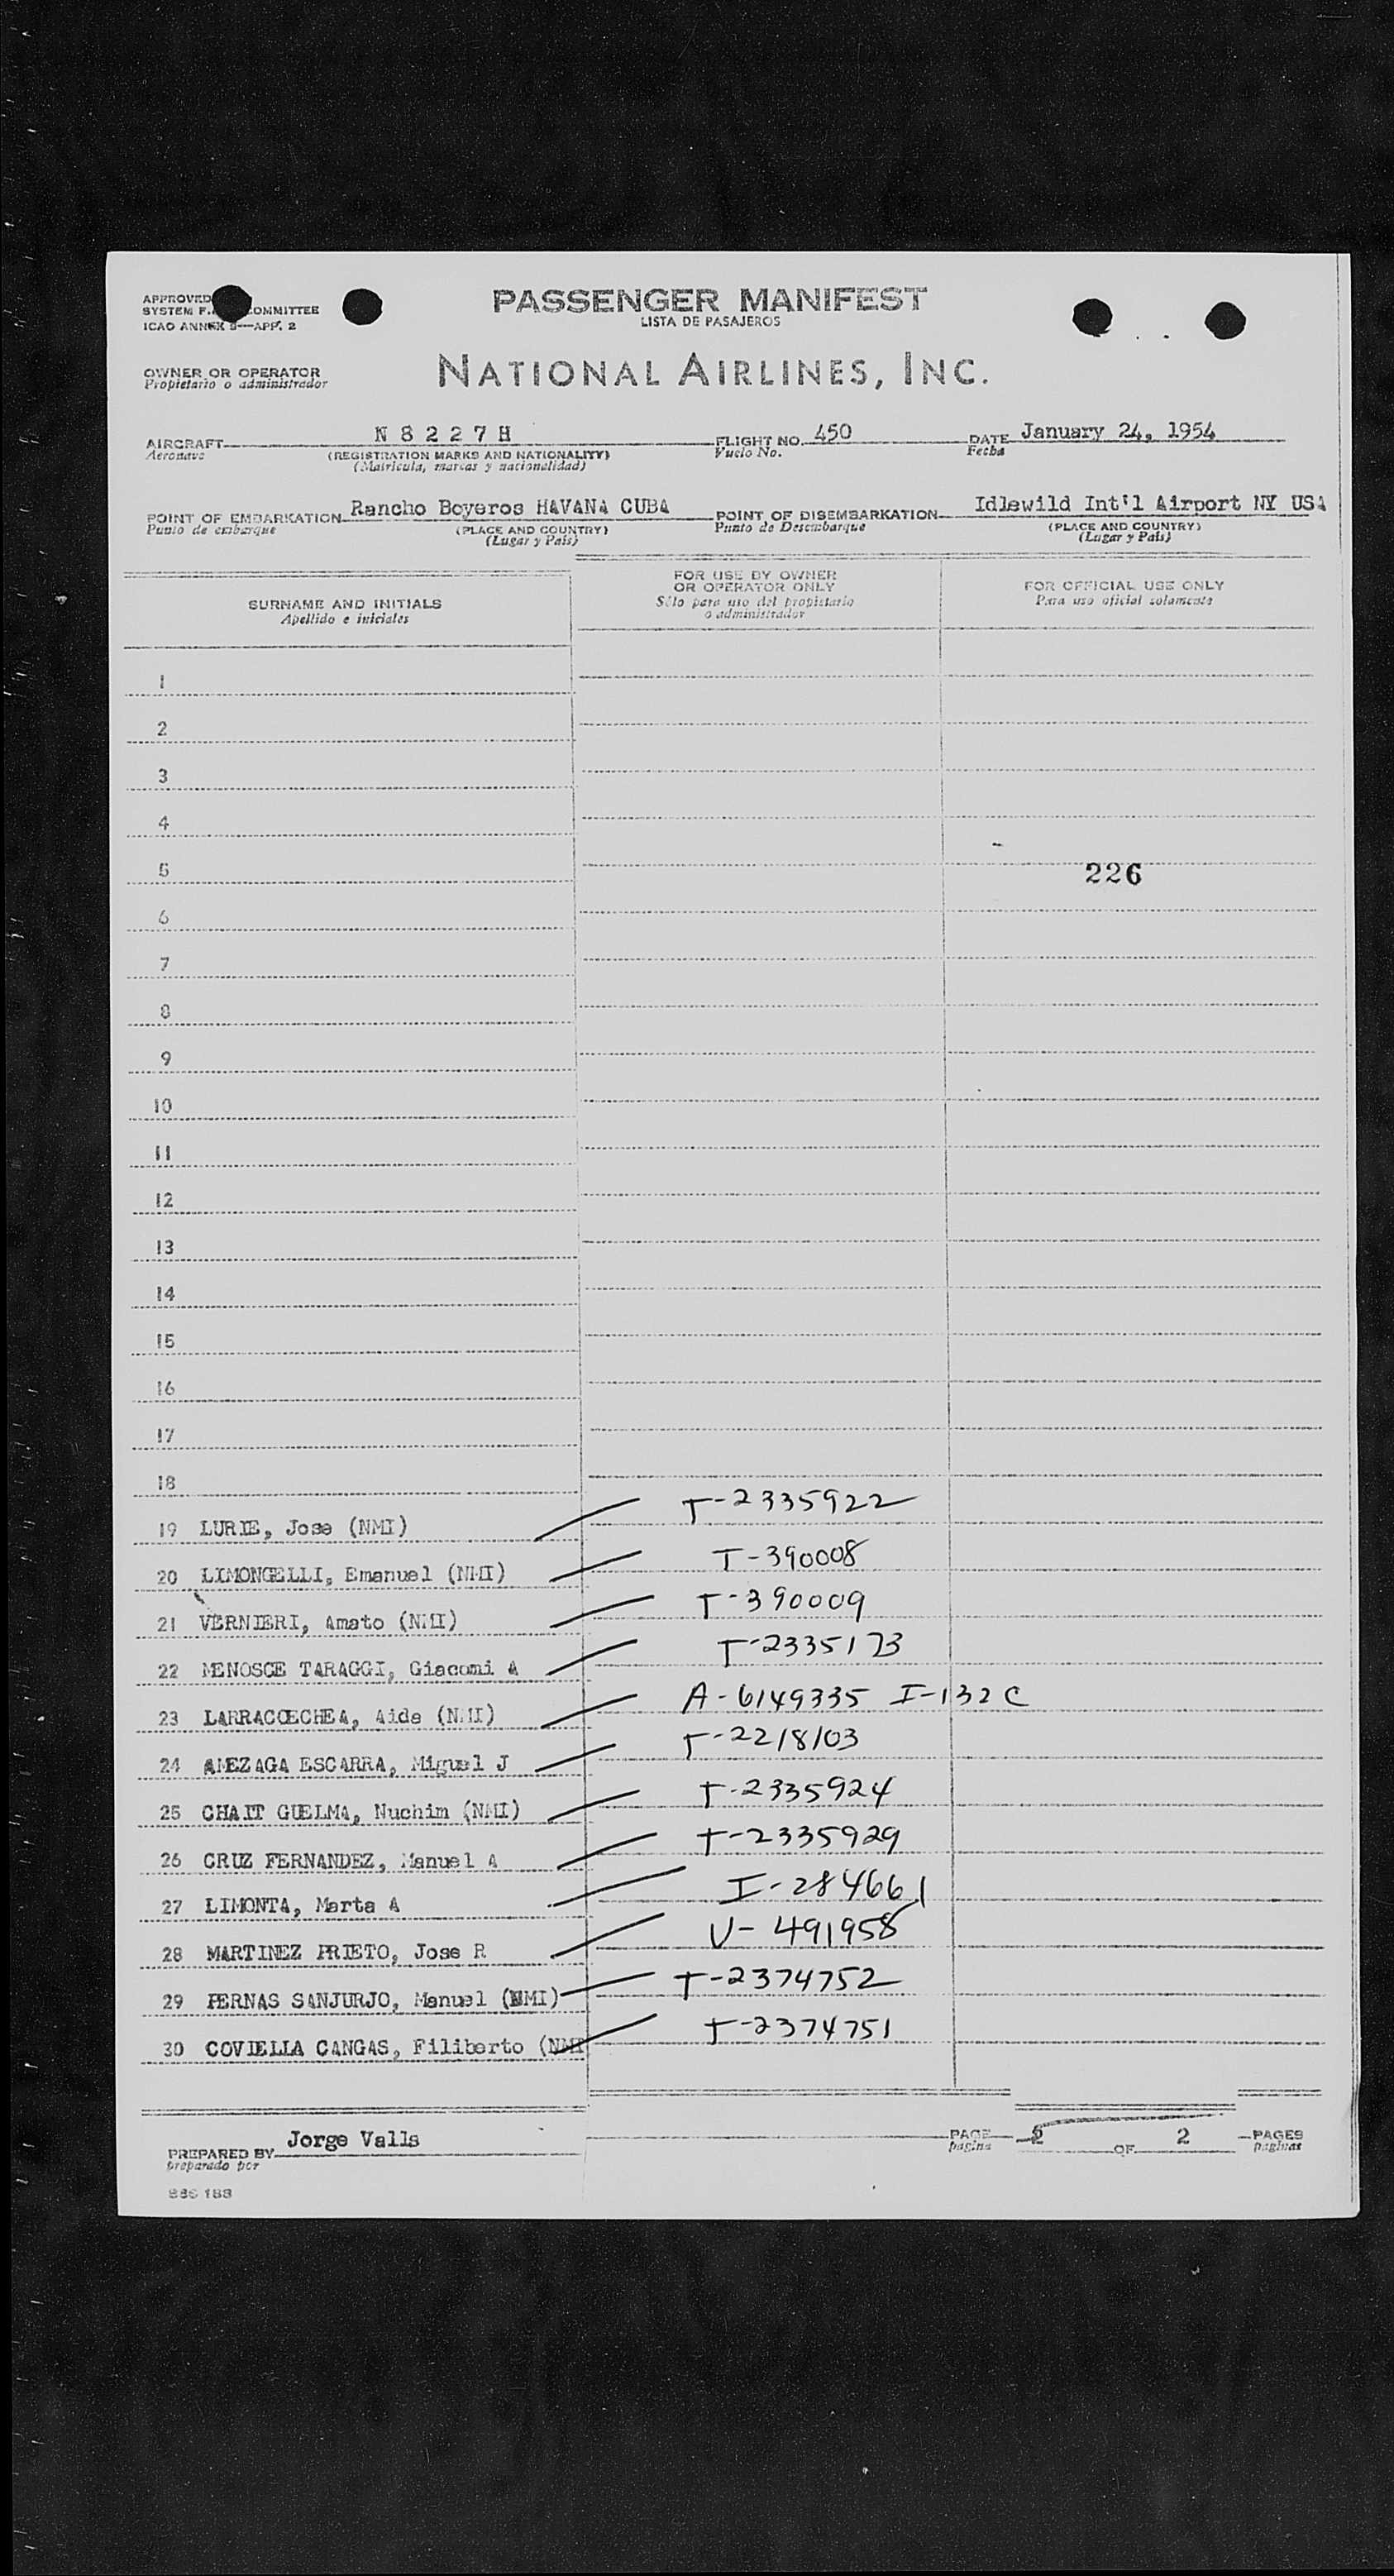 APPROVED
SYSTEM F. COMMITTEE
ICAO ANNEX 9—APP. 2
PASSENGER MANIFEST
LISTA DE PASAJEROS
OWNER OR OPERATOR
Propietario o administrador
NATIONAL AIRLINES, INC.
AIRCRAFT N 8 2 2 7 H FLIGHT NO. 450 DATE January 24, 1954
Aeronave (REGISTRATION MARKS AND NATIONALITY) Vuelo No. Fecha
(Matricula, marcas y nacionalidad)
POINT OF EMBARKATION Rancho Boyeros HAVANA CUBA POINT OF DISEMBARKATION Idlewild Int'l Airport NY USA
Punto de embarque (PLACE AND COUNTRY) Punto de Desembarque (PLACE AND COUNTRY)
(Lugar y Pais) (Lugar y Pais)
SURNAME AND INITIALS
Apellido e iniciales
FOR USE BY OWNER
OR OPERATOR ONLY
Sólo para uso del propietario
o administrador
FOR OFFICIAL USE ONLY
Para uso oficial solamente
1
2
3
4
5 226
6
7
8
9
10
11
12
13
14
15
16
17
18
19 LURIE, Jose (NMI) T-2335922
20 LIMONGELLI, Emanuel (NMI) T-390008
21 VERNIERI, Amato (NMI) T-390009
22 MENOSCE TARAGGI, Giacomi A T-2335173
23 LARRACOECHEA, Aida (NMI) A-6149335 I-132C
24 AMEZAGA ESCARRA, Miguel J T-2218103
25 CHAIT GUELMA, Nuchim (NMI) T-2335924
26 CRUZ FERNANDEZ, Manuel A T-2335929
27 LIMONTA, Marta A I-284661
28 MARTINEZ PRIETO, Jose R V-491958
29 PERNAS SANJURJO, Manuel (NMI) T-2374752
30 COVIELLA CANGAS, Filiberto (NMI T-2374751
PREPARED BY Jorge Valls PAGE 2 OF 2 PAGES
preparado por pagina paginas